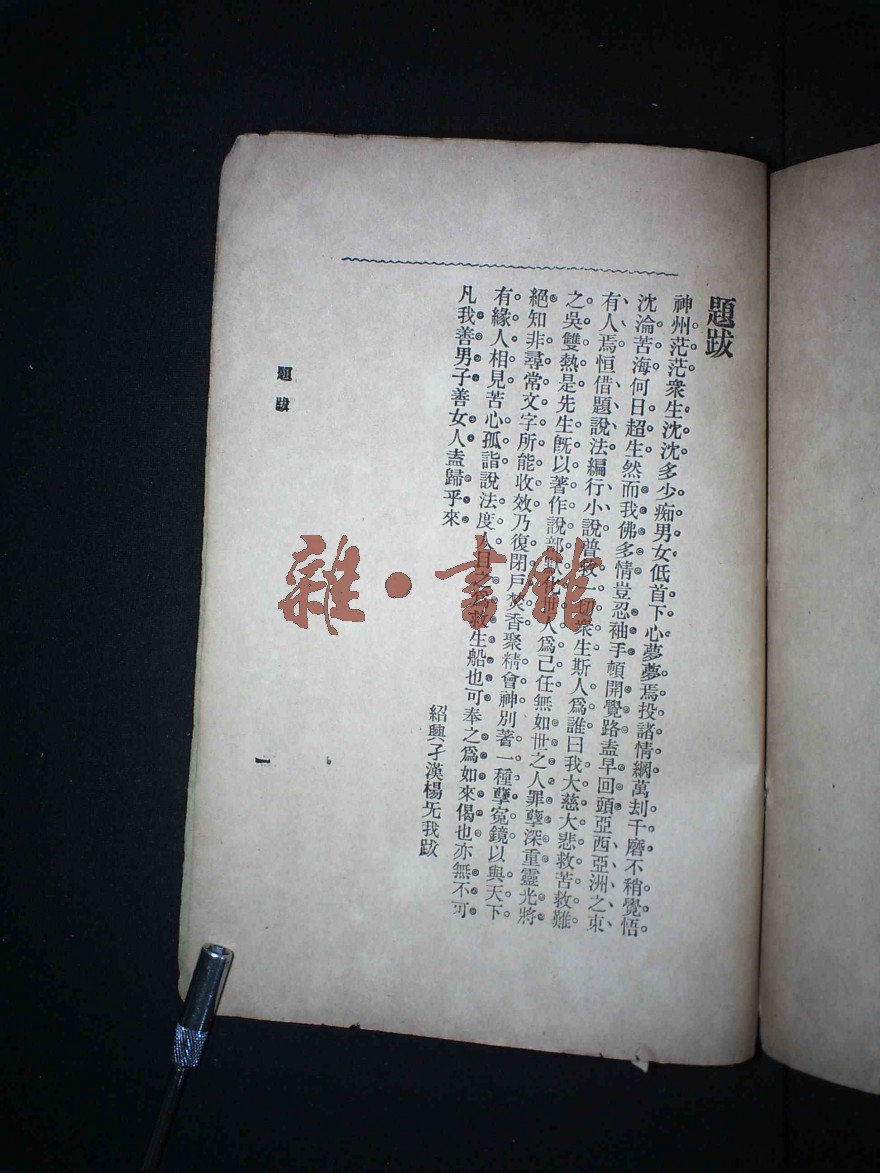 題跋
神州茫茫衆生沈沈多少痴男女低首下心夢夢焉投諸情網萬刦千磨不稍覺悟
沈淪苦海何日超生然而我佛多情豈忍袖手頓開覺路盍早回頭亞西亞洲之東
有人焉恒借題說法編行小說普救一切衆生斯人爲誰曰我大慈大悲救苦救難
之吳雙熱是先生旣以著作說部 世人爲己任無如世之人罪孽深重靈光將
絕知非尋常文字所能收效乃復閉戶焚香聚精會神別著一種孽寃鏡以與天下
有緣人相見苦心孤詣說法度人目之爲救生船也可奉之爲如來偈也亦無不可
凡我善男子善女人盍歸乎來
紹興孑漢楊旡我跋
題跋
一
雜·書館